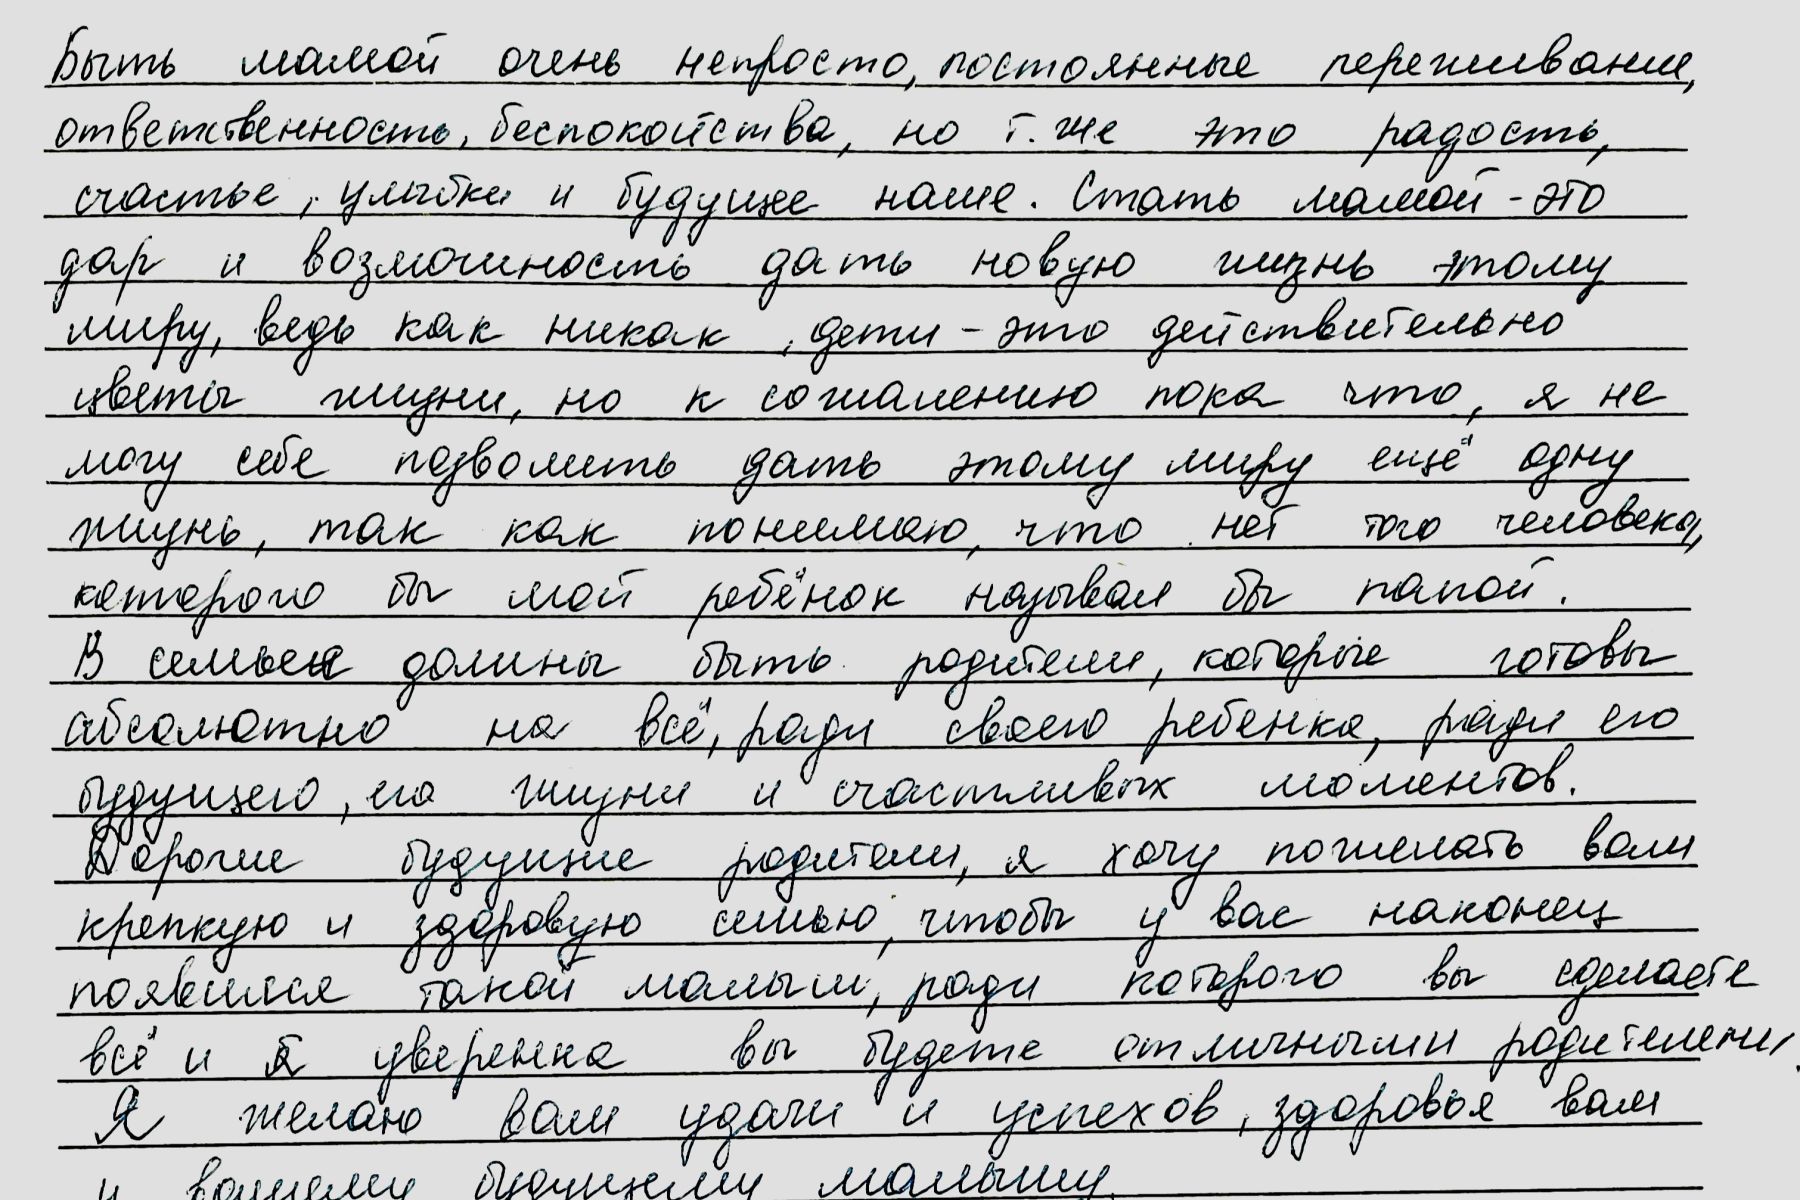 Быть мамой очень непросто, постоянные переживание,
ответственность, беспокойства, но т.же это радость,
счастье, улыбки и будущее наше. Стать мамой - это
дар и возможность дать новую жизнь этому
миру, ведь как никак, дети - это действительно
цветы жизни, но к сожалению пока что, я не
могу себе позволить дать этому миру ещё одну
жизнь, так как понимаю, что нет того человека,
которого бы мой ребёнок называл бы папой.
В семье должны быть родители, которые готовы
абсолютно на всё, ради своего ребенка, ради его
будущего, его жизни и счастливых моментов.
Дорогие будущие родители, я хочу пожелать вам
крепкую и здоровую семью, чтобы у вас наконец
появился такой малыш, ради которого вы сделаете
всё и я уверенна вы будете отличными родителеми.
Я желаю вам удачи и успехов, здоровья вам
и вашему будущему малышу.